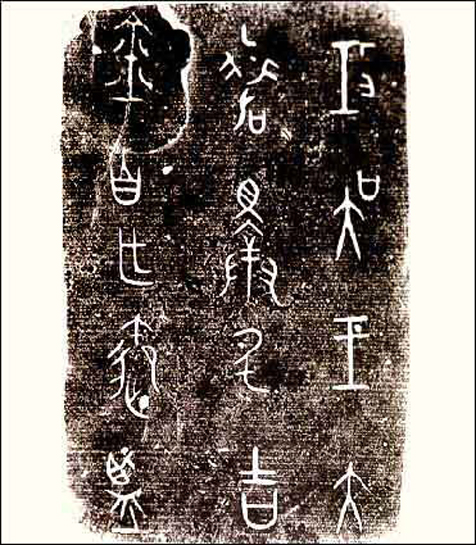 攻吳王夫
差擇厥吉
金自乍御監